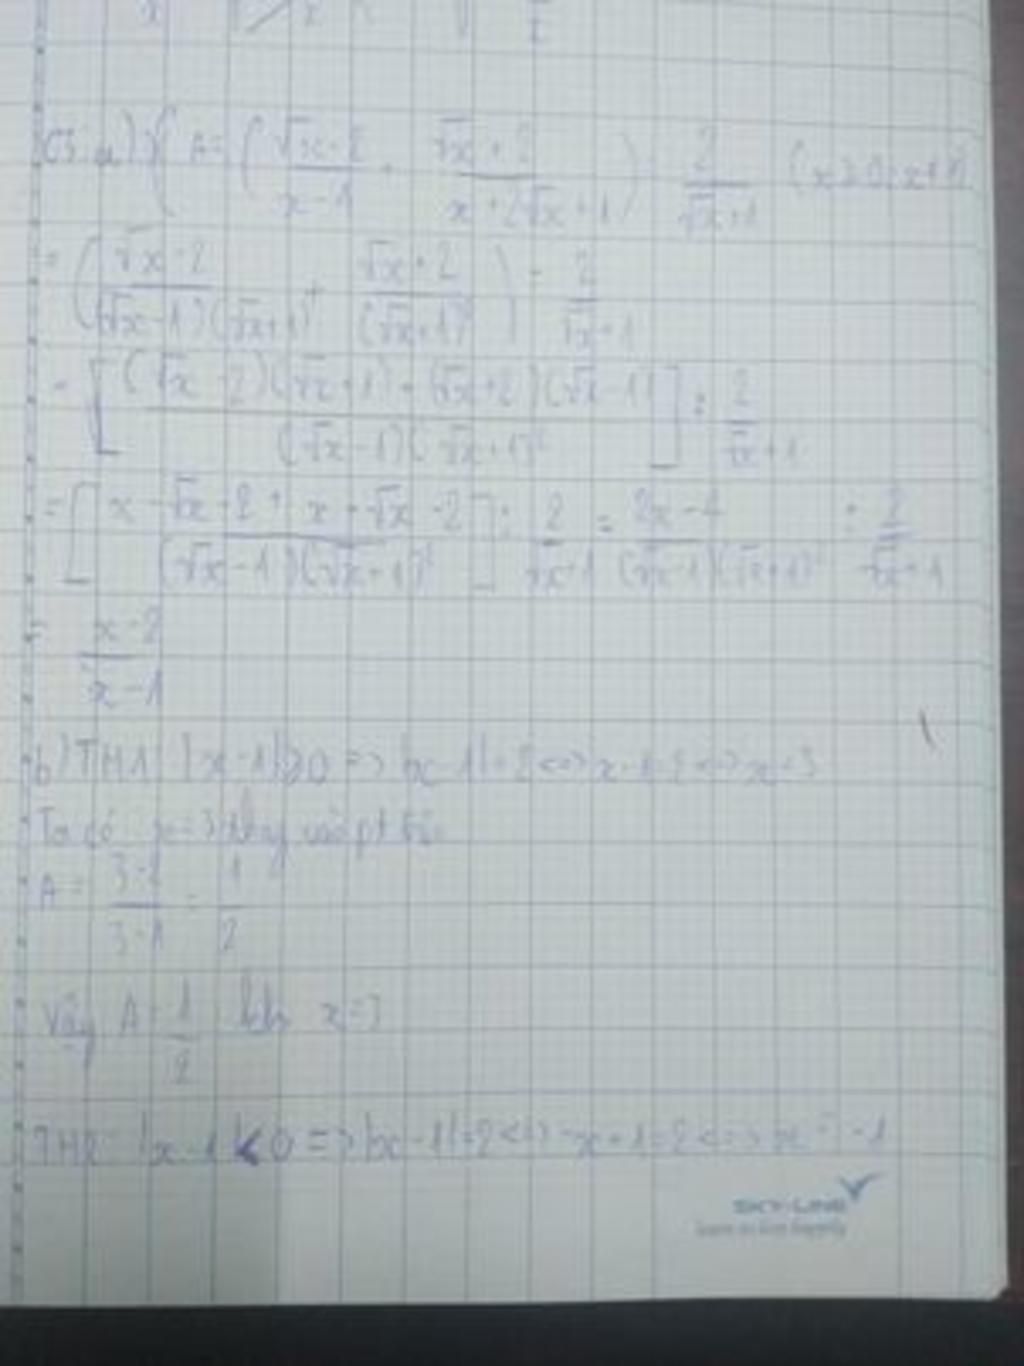 A = (√x-2 / x-1 + √x+2 / x+2√x+1) : 2 / √x+1 (x≥0; x≠1)
= (√x-2 / (√x-1)(√x+1) + √x+2 / (√x+1)²) : 2 / √x+1
= [(√x-2)(√x+1) + (√x+2)(√x-1) / (√x-1)(√x+1)²] : 2 / √x+1
= [x-√x-2+x+√x-2 / (√x-1)(√x+1)²] : 2 / √x+1 = 2x-4 / (√x-1)(√x+1)² : 2 / √x+1
= x-2 / x-1
b) TH1: |x-1|≥0 => |x-1|=2 <=> x-1=2 <=> x=3
Ta có x=3 thay vào pt
A = 3-2 / 3-1 = 1 / 2
Vậy A = 1 / 2 khi x=3
TH2: |x-1|<0 => |x-1|=2 <=> -x+1=2 <=> x=-1
SKY-LINE